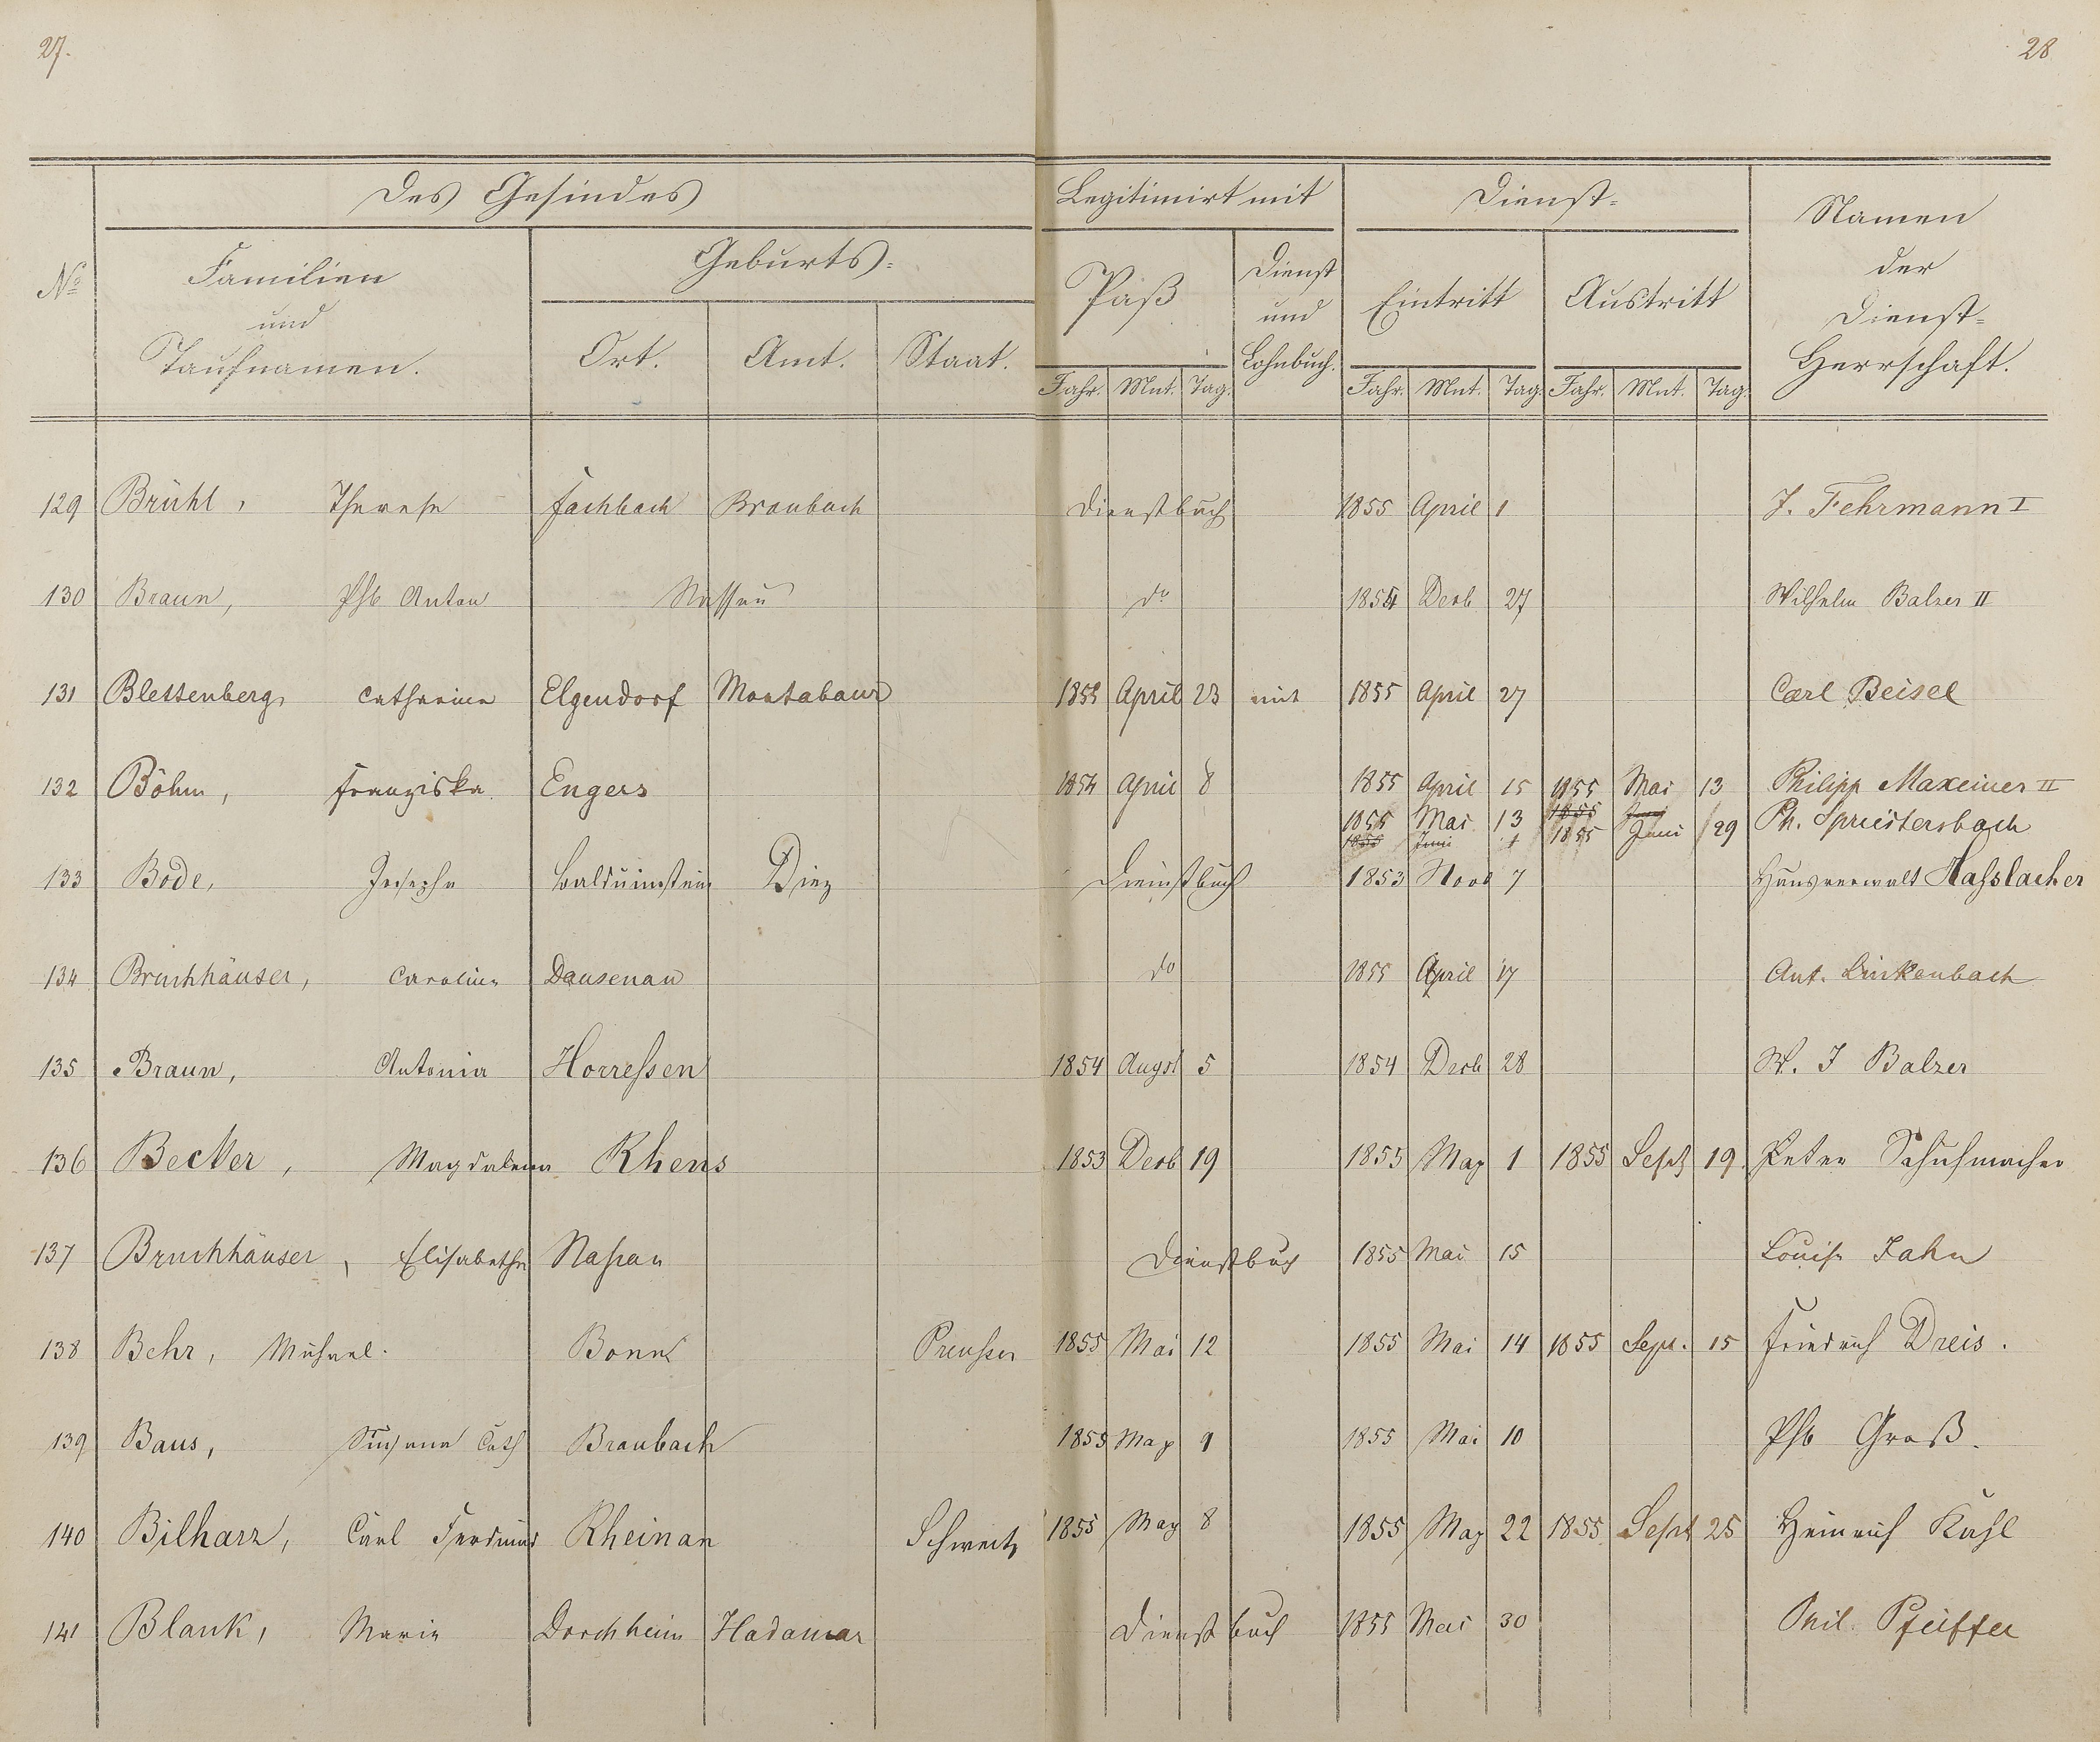 27.
28
Des Gesindes
Legitimirt mit
Dienst-
Namen
der
Dienst-
Herrschaft.
No
Familien
und
Taufnamen.
Geburts-
Ort.
Amt.
Staat.
Paß
Dienst
und
Lohnbuch.
Eintritt
Austritt
Jahr. Mnt. Tag.
Jahr. Mnt. Tag. Jahr. Mnt. Tag.
129 Brühl, Therese Fachbach Braubach Dienstbuch 1855 April 1 J. Fehrmann I
130 Braun, Phb Anton Nassau do 1854 Decb 27 Wilhelm Balzer II
131 Blettenberg, Catharina Elgendorf Montabaur 1855 April 23 mit 1855 April 27 Carl Beisel
132 Böhm, Franziska Engers 1854 April 8 1855 April 15 1855 Mai 13 Philipp Maxeiner II
1855 Mai 13 1855 Juni 29 Ph. Spriestersbach
1855 Juni 1
133 Bode, Josepha Balduinstein Diez Dienstbuch 1853 Novb 7 Hausverwalt Hasslacher
134 Bruchhäuser, Caroline Dausenau do 1855 April 17 Ant. Linkenbach
135 Braun, Antonia Horressen 1854 Augst 5 1854 Decb 28 W. J Balzer
136 Becker, Magdalena Rhens 1853 Decb 19 1855 May 1 1855 Sept 19. Peter Schuhmacher
137 Bruchhäuser, Elisabetha Nassau Dienstbuch 1855 Mai 15 Louise Jahn
138 Behr, Michael. Bonn Preussen 1855 Mai 12 1855 Mai 14 1855 Sept. 15 Friedrich Dreis.
139 Baus, Susanna Cath Braubach 1855 May 9 1855 Mai 10 Phb Groß.
140 Bilharz, Carl Ferdinand Rheinau Schweitz 1855 May 8 1855 May 22 1855 Sept 25 Heinrich Kahl
141 Blank, Maria Dorchheim Hadamar Dienstbuch 1855 Mai 30 Phil. Pfeiffer